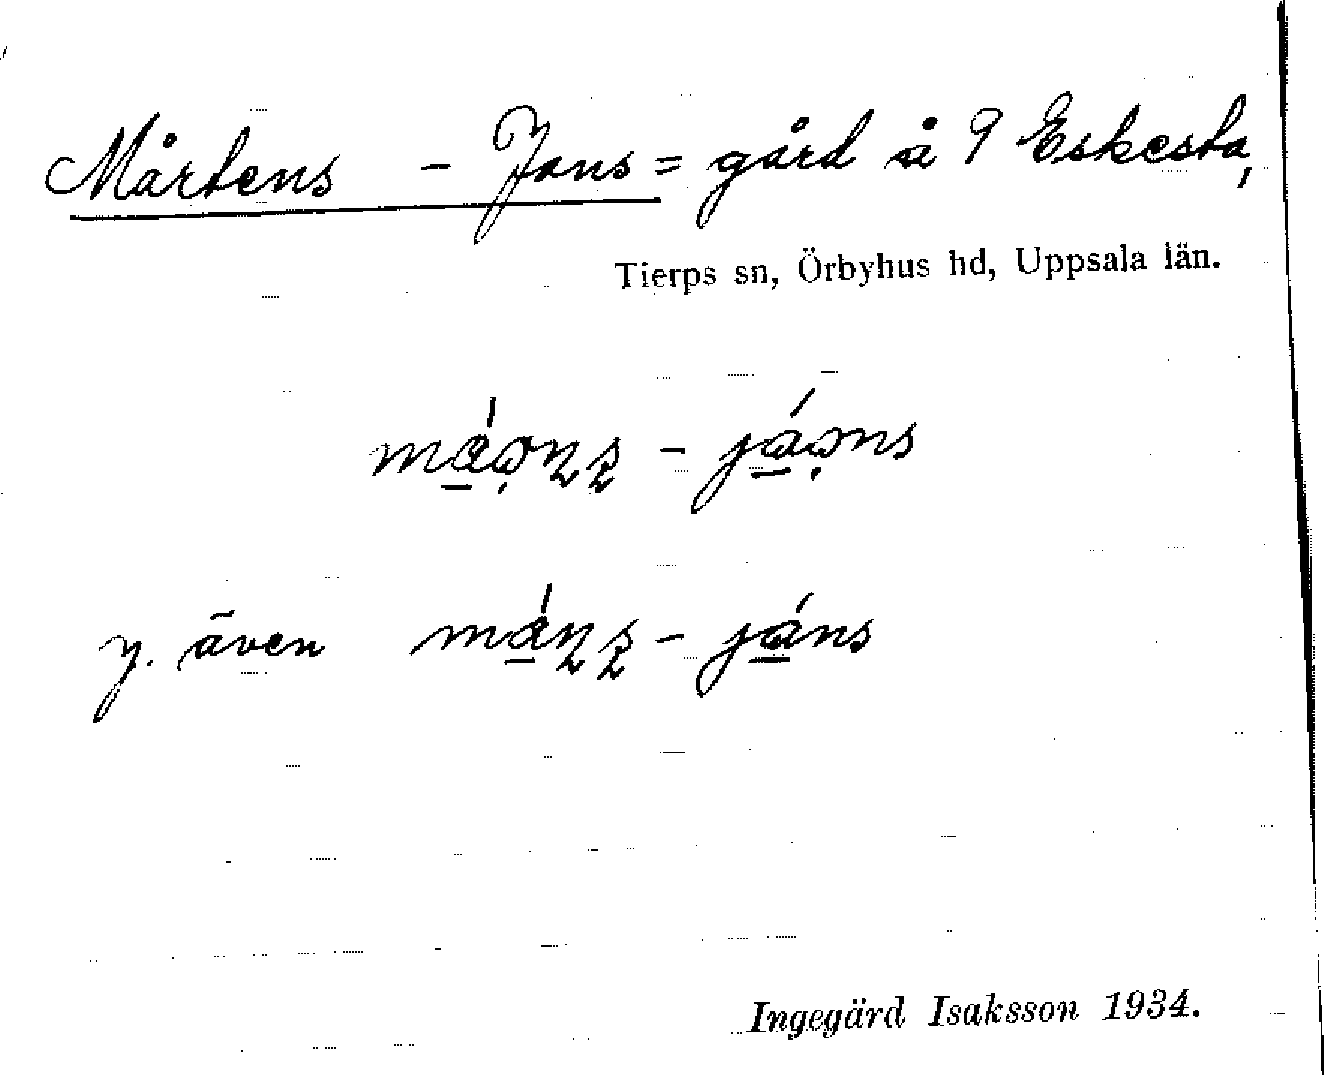 Mårtens - Jans = gård å 9 Eskesta,
Tierps sn, Örbyhus hd, Uppsala län.
y. även
Ingegärd Isaksson 1934.